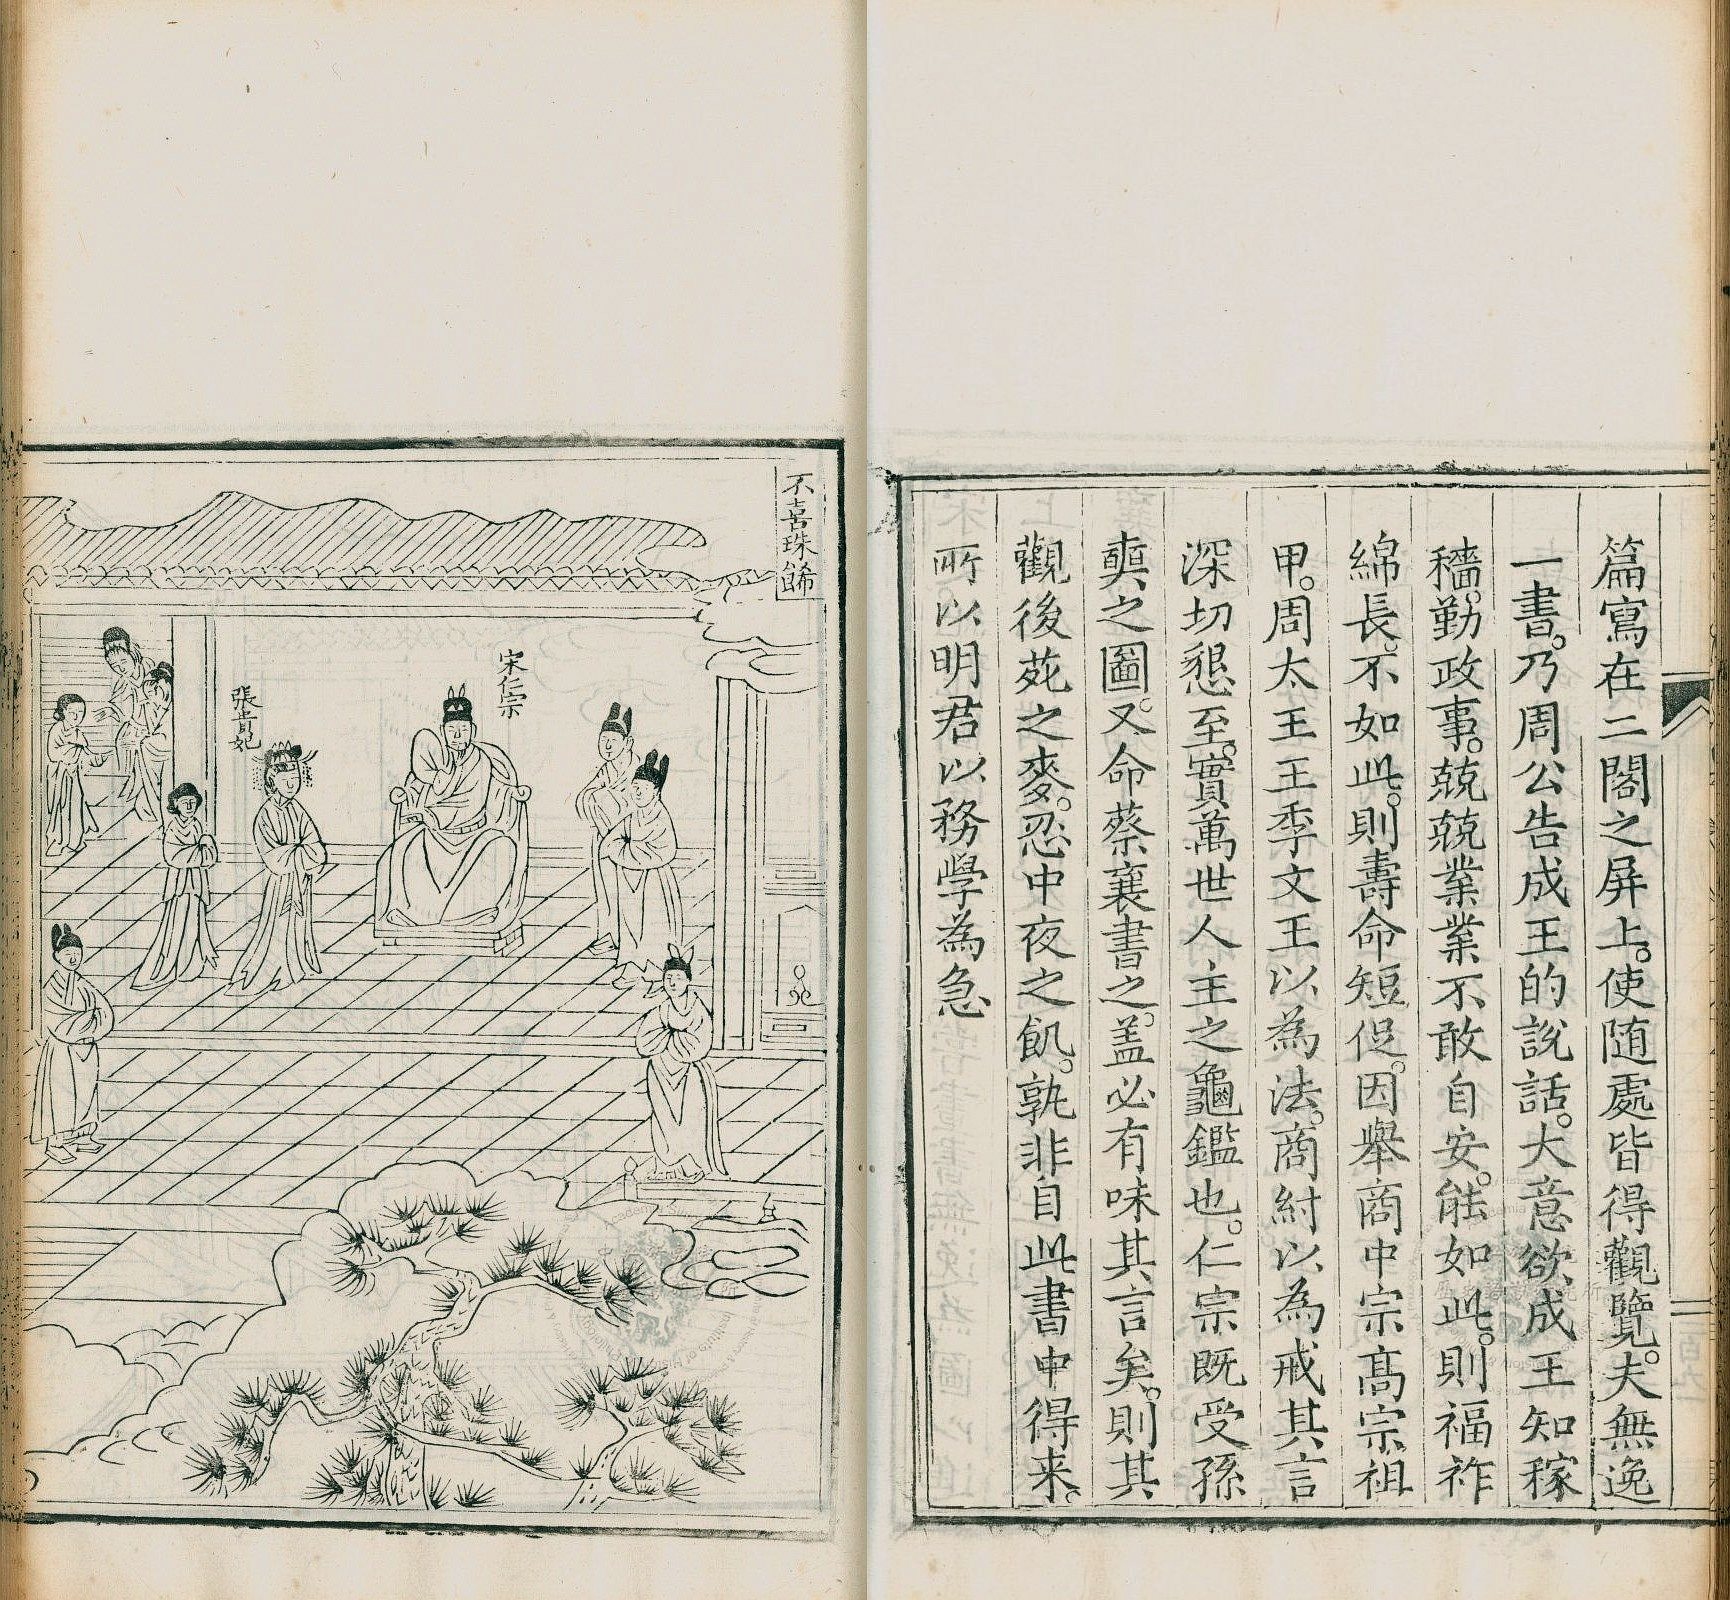 篇寫在二閣之屏上。使随處皆得觀覽。夫無逸
一書。乃周公告成王的說話。大意欲成王知稼
穡。勤政事。兢兢業業不敢自安。能如此。則福祚
綿長。不如此。則壽命短促。因舉商中宗高宗祖
甲。周太王王季文王以為法。商紂以為戒其言
深切懇至。實萬世人主之龜鑑也。仁宗既受孫
奭之圖。又命蔡襄書之。盖必有味其言矣。則其
觀後苑之麥。忍中夜之飢。孰非自此書中得来。
所以明君以務學為急
不喜珠飾
宋仁宗
張貴妃